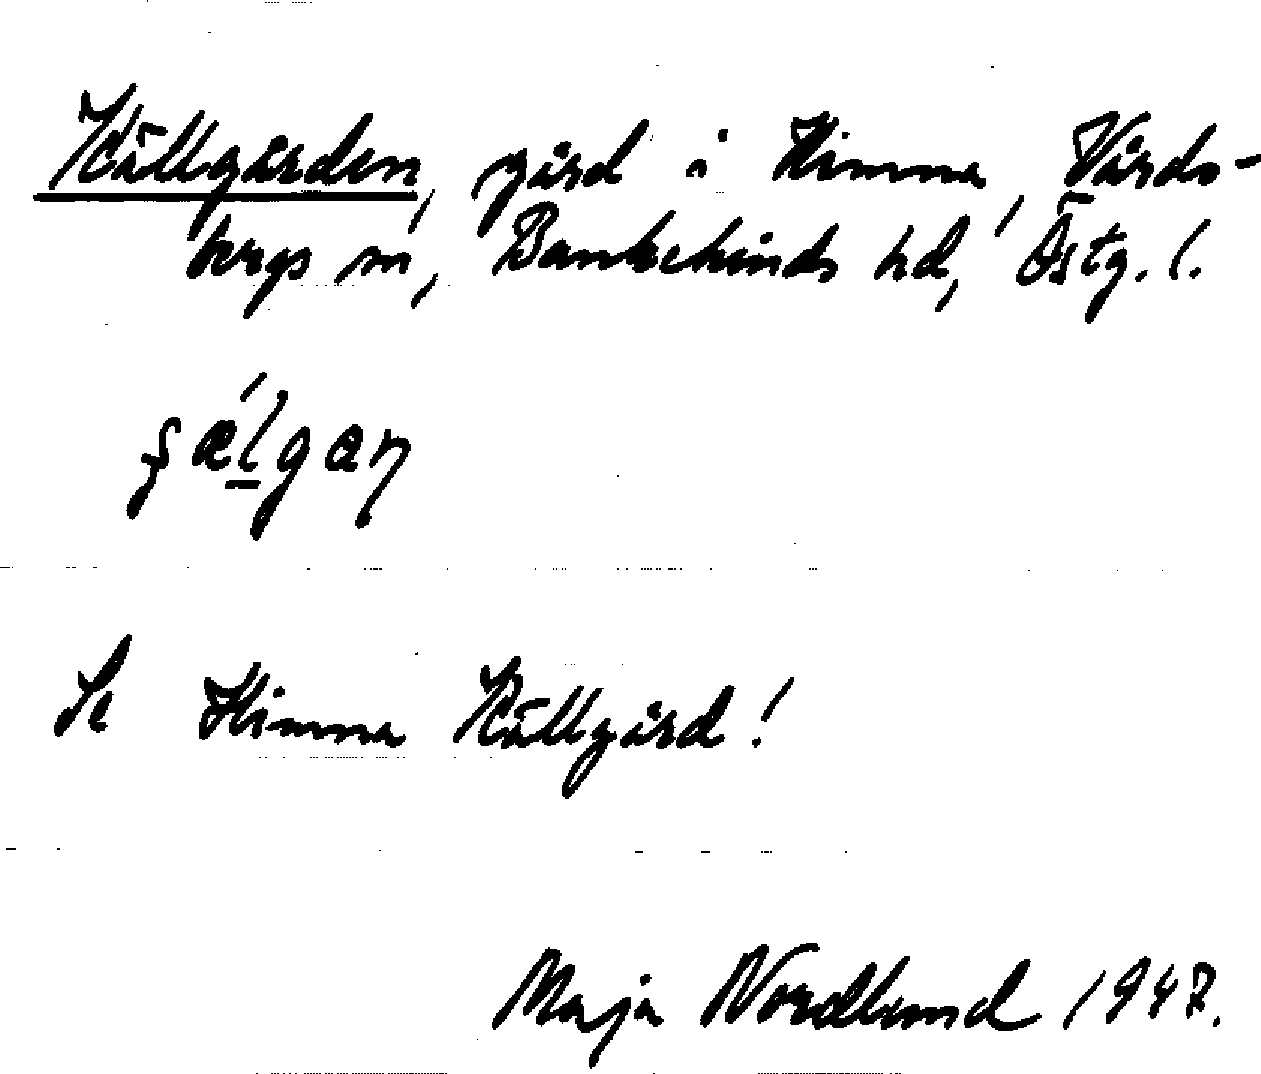 Källgården, gård i Himna, Vårds-
bergs sn, Bankekinds hd, Östg. l.
Se Himna Källgård!
Maja Nordlund 1947.